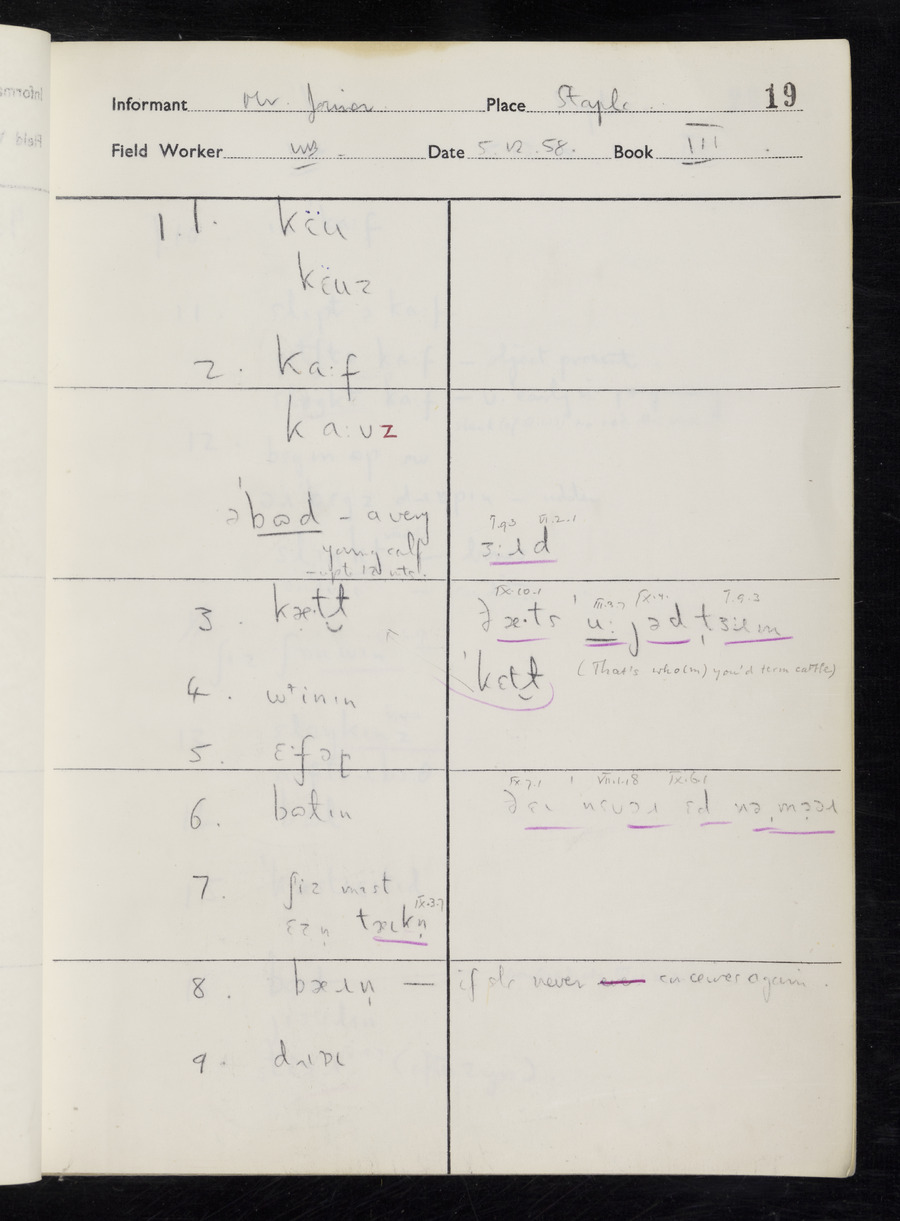 Informant Mr. Place Staple 19
Field Worker Date 5.12.58. Book III
1.1. kɛ̈u
kɛ̈uz
2. ka:f
ka:vz
əˈbɒd – a very
young calf
– upt. 12 wts.
I.9.3 VI.2.1
ɜ:ɪd
3. kæ·tt̬
IX.10.1 III.3.7 IX.9. I.5.3
ðæ·ts ˈu: jəd t̩ɜ:ɪm
ˈkɛtt̬ (That's who(m) you'd term cattle)
4. wɪnɪn
5. ɛ·fəɽ
6. bɒtɪn
IX.7.1 VII.1.18 IX.6.1
ðɛɪ nɛvəɪ ɛd nə mɒəɪ
7. ʃiz mɪst
IX.3.7
ɛzn̩ tæɪkn̩
8. bæ·ɪn̩ — if she never conceives again.
9. dɹɒɪ